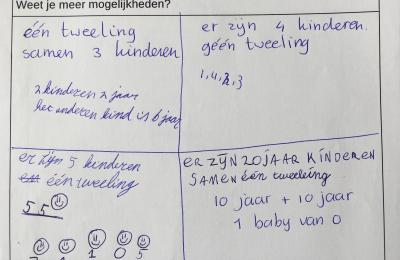 Weet je meer mogelijkheden?
één tweeling
samen 3 kinderen
2 kinderen 2 jaar
het anderen kind is 6 jaar
er zijn 4 kinderen.
géén tweeling
1, 4, 2, 3
er zijn 5 kinderen
één tweeling
5 5
1 0 5
ER ZIJN 20 JAAR KINDEREN
SAMEN één tweeleing
10 jaar + 10 jaar
1 baby van 0